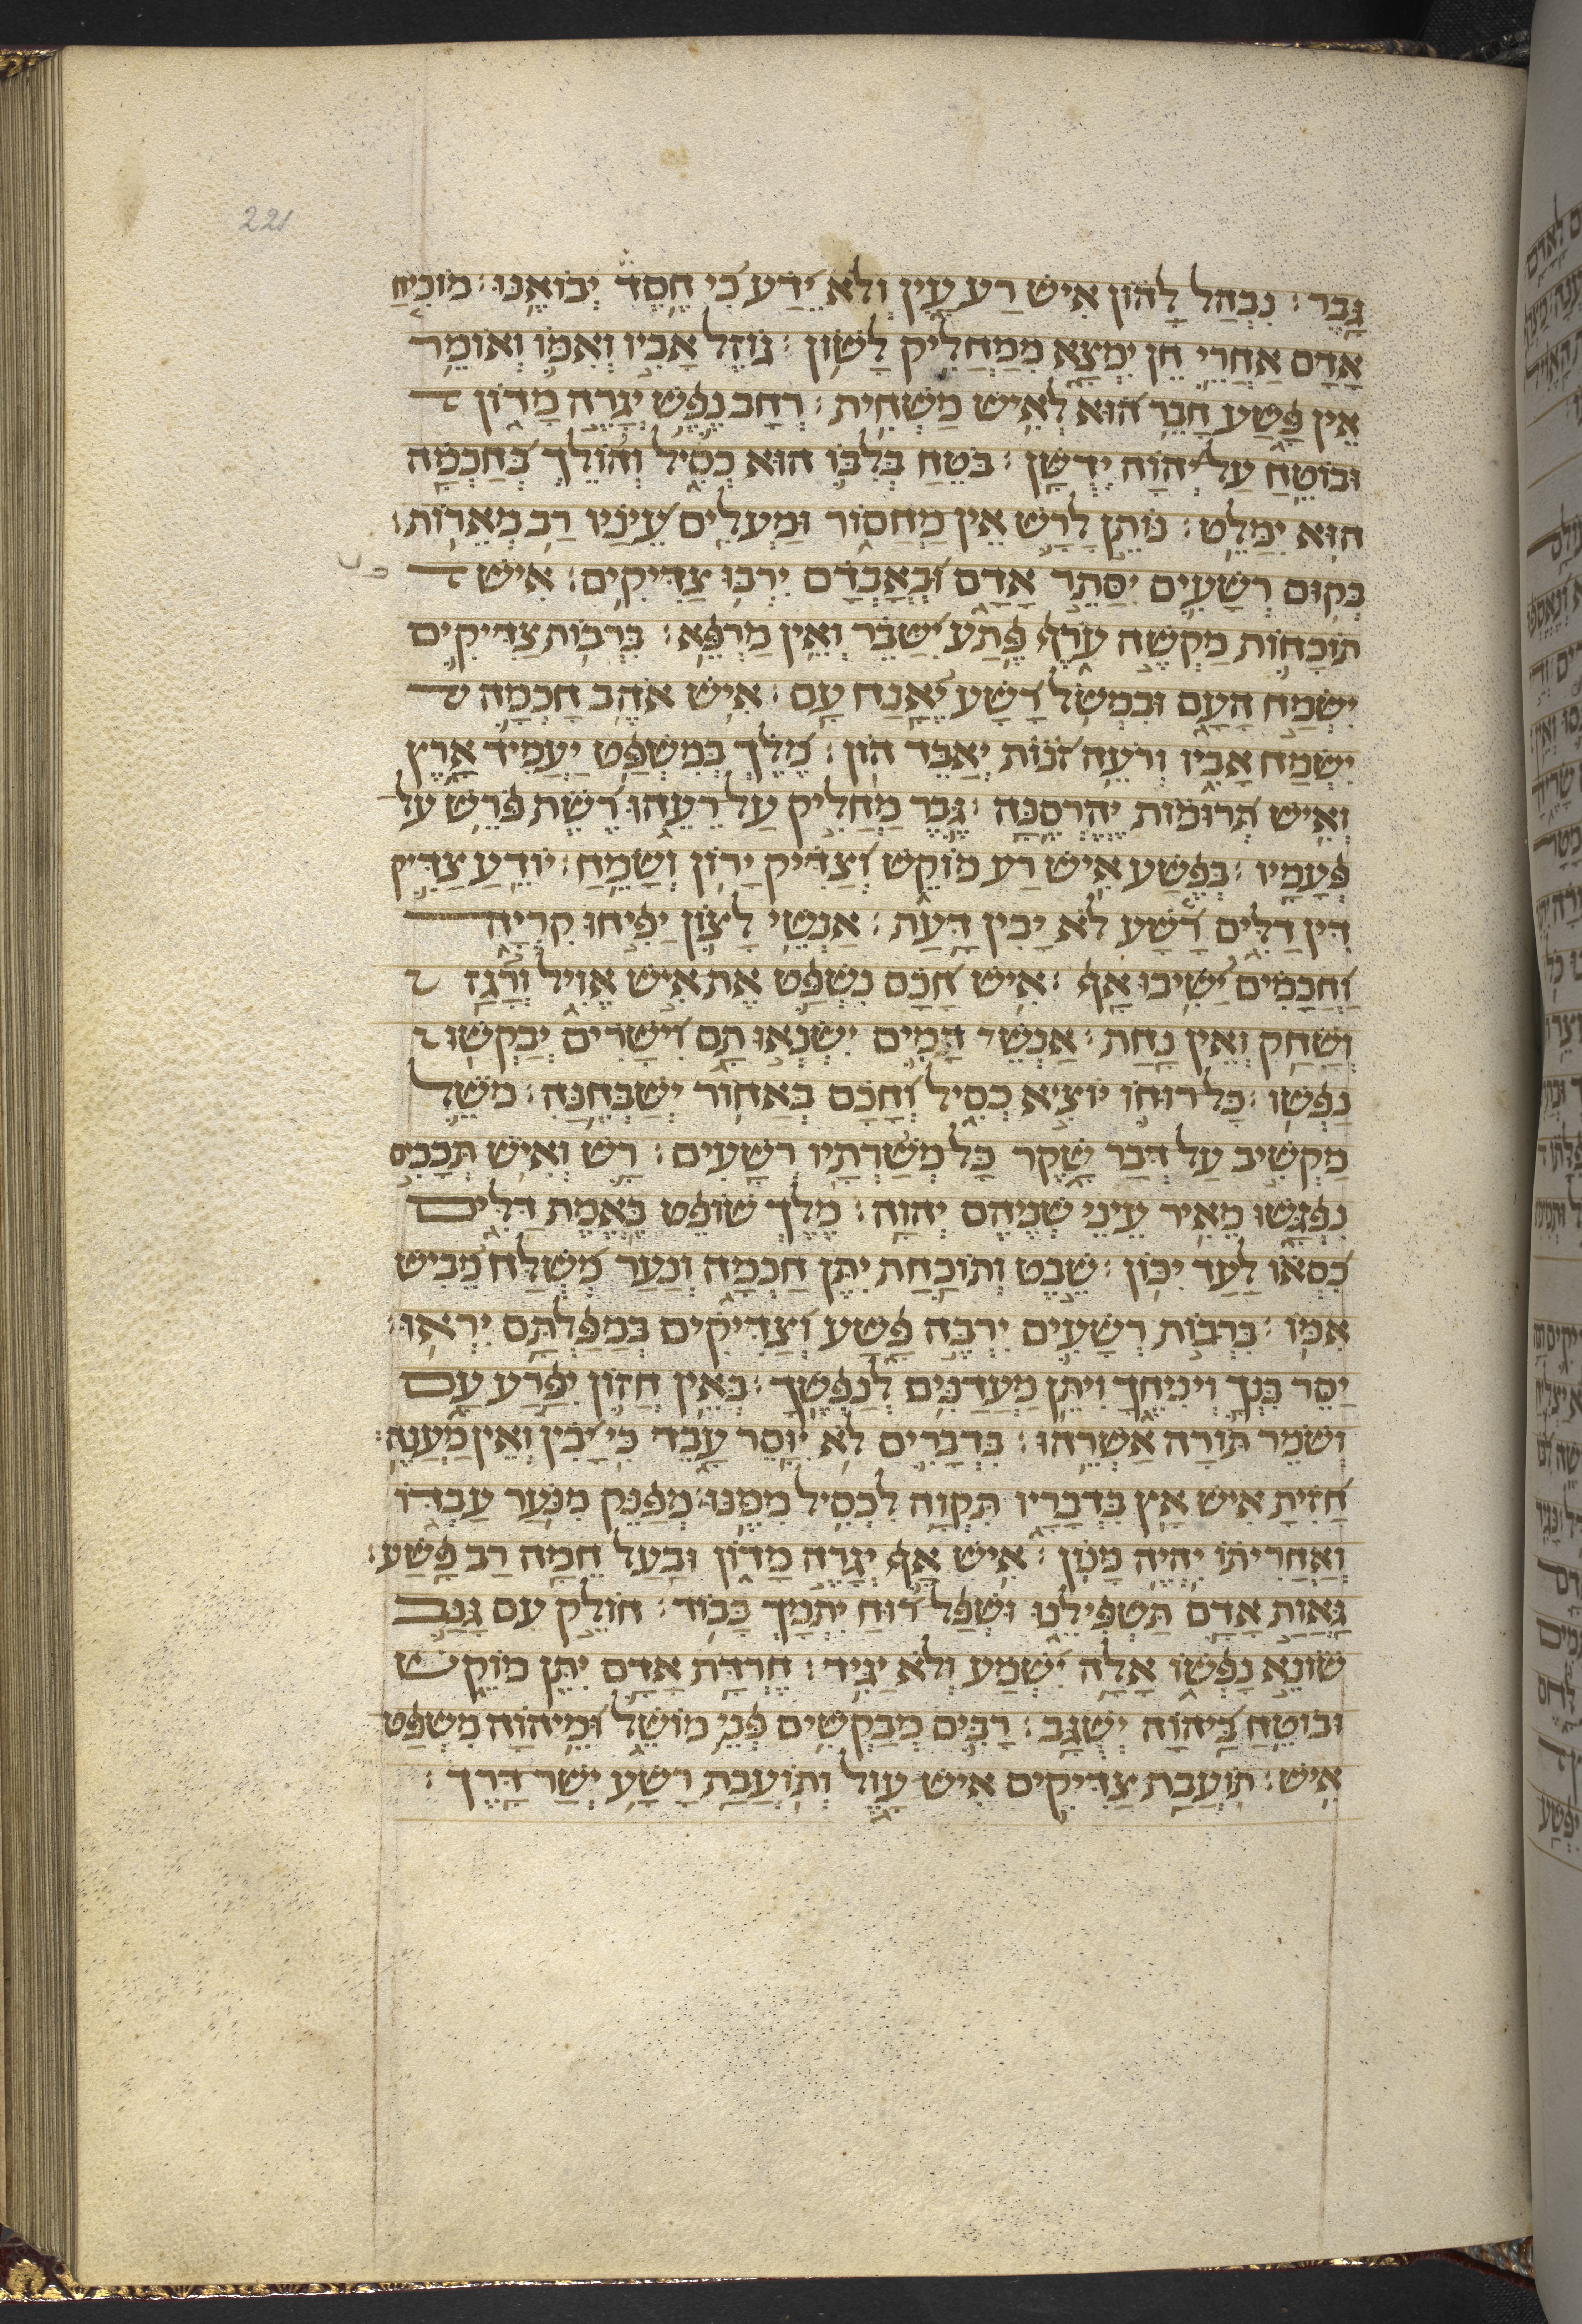 221
גבר : נבהל להון איש רע עין ולא ידע כי חסד יבואנו : מוכיח
אדם אחרי חן ימצא ממחליק לשון : גוזל אביו ואמו ואומר
אין פשע חבר הוא לאיש משחית : רחב נפש יגרה מדון
ובוטח על יהוה ידשן : בטח בלבו הוא כסיל והולך בחכמה
הוא ימלט : נותן לרש אין מחסור ומעלים עיניו רב מארות :
בקום רשעים יסתר אדם ובאבדם ירבו צדיקים : איש
תוכחות מקשה ערף פתע ישבר ואין מרפא : ברבות צדיקים
ישמח העם ובמשל רשע יאנח עם : איש אהב חכמה
ישמח אביו ורעה זנות יאבד הון : מלך במשפט יעמיד ארץ
ואיש תרומות יהרסנה : גבר מחליק על רעהו רשת פרש על
פעמיו : בפשע איש רע מוקש וצדיק ירון ושמח : יודע צדיק
דין דלים רשע לא יבין דעת : אנשי לצון יפיחו קריה
וחכמים ישיבו אף : איש חכם נשפט את איש אויל ורגז
ושחק ואין נחת : אנשי דמים ישנאו תם וישרים יבקשו
נפשו : כל רוחו יוציא כסיל וחכם באחור ישבחנה : משל
מקשיב על דבר שקר כל משרתיו רשעים : רש ואיש תככים
נפגשו מאיר עיני שניהם יהוה : מלך שופט באמת דלים
כסאו לעד יכון : שבט ותוכחת יתן חכמה ונער משלח מביש
אמו : ברבות רשעים ירבה פשע וצדיקים במפלתם יראו :
יסר בנך ויניחך ויתן מעדנים לנפשך : באין חזון יפרע עם
ושמר תורה אשרהו : בדברים לא יוסר עבד כי יבין ואין מענה :
חזית איש אץ בדבריו תקוה לכסיל ממנו : מפנק מנער עבדו
ואחריתו יהיה מנון : איש אף יגרה מדון ובעל חמה רב פשע :
גאות אדם תשפילנו ושפל רוח יתמך כבוד : חולק עם גנב
שונא נפשו אלה ישמע ולא יגיד : חרדת אדם יתן מוקש
ובוטח ביהוה ישגב : רבים מבקשים פני מושל ומיהוה משפט
איש : תועבת צדיקים איש עול ותועבת רשע ישר דרך :